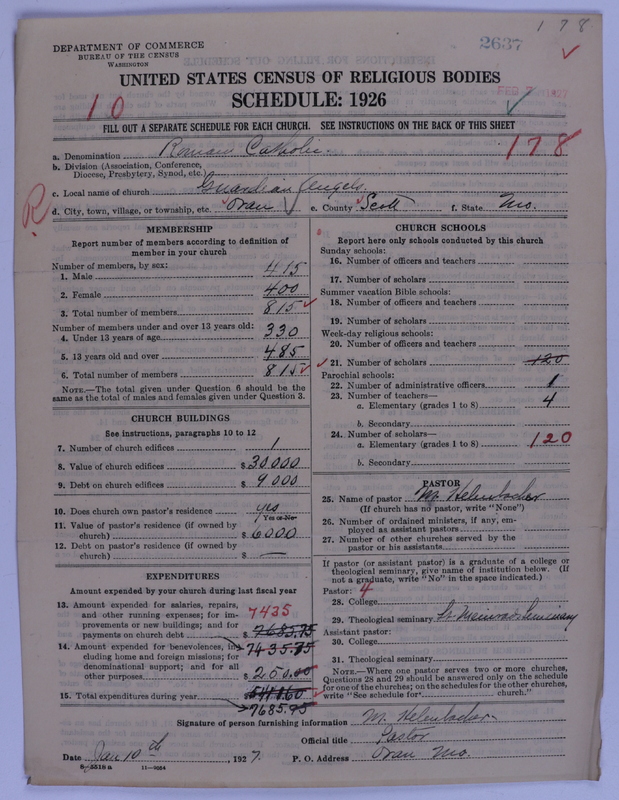 178
DEPARTMENT OF COMMERCE
BUREAU OF THE CENSUS
WASHINGTON
2637
UNITED STATES CENSUS OF RELIGIOUS BODIES
FEB 7 1927
10
SCHEDULE: 1926
FILL OUT A SEPARATE SCHEDULE FOR EACH CHURCH. SEE INSTRUCTIONS ON THE BACK OF THIS SHEET
a. Denomination Roman Catholic. 178
b. Division (Association, Conference, Diocese, Presbytery, Synod, etc.)
c. Local name of church Guardian Angels.
R
d. City, town, village, or township, etc. Oran e. County Scott f. State Mo.
MEMBERSHIP
Report number of members according to definition of
member in your church
Number of members, by sex:
1. Male 415
2. Female 400
3. Total number of members 815
Number of members under and over 13 years old:
4. Under 13 years of age 330
5. 13 years old and over 485
6. Total number of members 815
NOTE.—The total given under Question 6 should be the
same as the total of males and females given under Question 3.
CHURCH BUILDINGS
See instructions, paragraphs 10 to 12
7. Number of church edifices 1
8. Value of church edifices $30000
9. Debt on church edifices $ 9000
10. Does church own pastor's residence yes
Yes or No
11. Value of pastor's residence (if owned by
church) $ 6000
12. Debt on pastor's residence (if owned by
church) $ —
EXPENDITURES
Amount expended by your church during last fiscal year
13. Amount expended for salaries, repairs,
and other running expenses; for im- 7435
provements or new buildings; and for
payments on church debt $ 7685.75
14. Amount expended for benevolences, in- 7435.75
cluding home and foreign missions; for
denominational support; and for all
other purposes $ 250.00
15. Total expenditures during year
7685.75
CHURCH SCHOOLS
Report here only schools conducted by this church
Sunday schools:
16. Number of officers and teachers
17. Number of scholars
Summer vacation Bible schools:
18. Number of officers and teachers
19. Number of scholars
Week-day religious schools:
20. Number of officers and teachers
21. Number of scholars 120
Parochial schools:
22. Number of administrative officers 1
23. Number of teachers—
a. Elementary (grades 1 to 8) 4
b. Secondary
24. Number of scholars—
a. Elementary (grades 1 to 8) 120
b. Secondary
PASTOR
25. Name of pastor M. Helmbacher
(If church has no pastor, write "None")
26. Number of ordained ministers, if any, em-
ployed as assistant pastors
27. Number of other churches served by the
pastor or his assistants
If pastor (or assistant pastor) is a graduate of a college or
theological seminary, give name of institution below. (If
not a graduate, write "No" in the space indicated.)
Pastor: 4
28. College
29. Theological seminary St. Meinrad Seminary
Assistant pastor:
30. College
31. Theological seminary
NOTE.—Where one pastor serves two or more churches,
Questions 28 and 29 should be answered only on the schedule
for one of the churches; on the schedules for the other churches,
write "See schedule for church."
Signature of person furnishing information M. Helmbacher
Official title Pastor
Date Jan 10th, 1927. P. O. Address Oran Mo.
8-5518a 11-9064